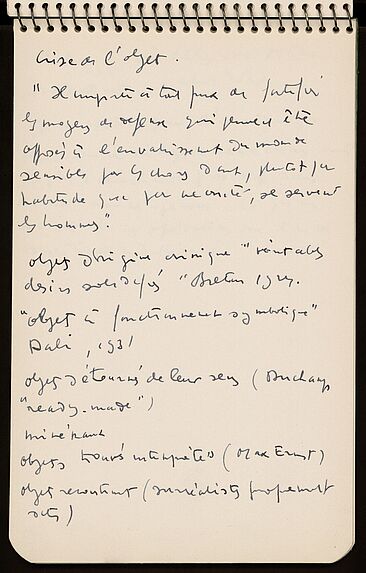 crise de l'objet.
"Il importe à tout prix de fortifier
les moyens de défense qui peuvent être
opposés à l'envahissement du monde
sensible par les choses dont, plutôt par
habitude que par nécessité, se servent
les hommes".
objets d'origine onirique "véritables
désirs solidifiés" Breton 1924.
"objet à fonctionnement symbolique"
Dali, 1931
objets détournés de leur sens (Duchamp
"ready-made")
objets trouvés interprétés (Max Ernst)
objets (surréalistes proprement
dits)